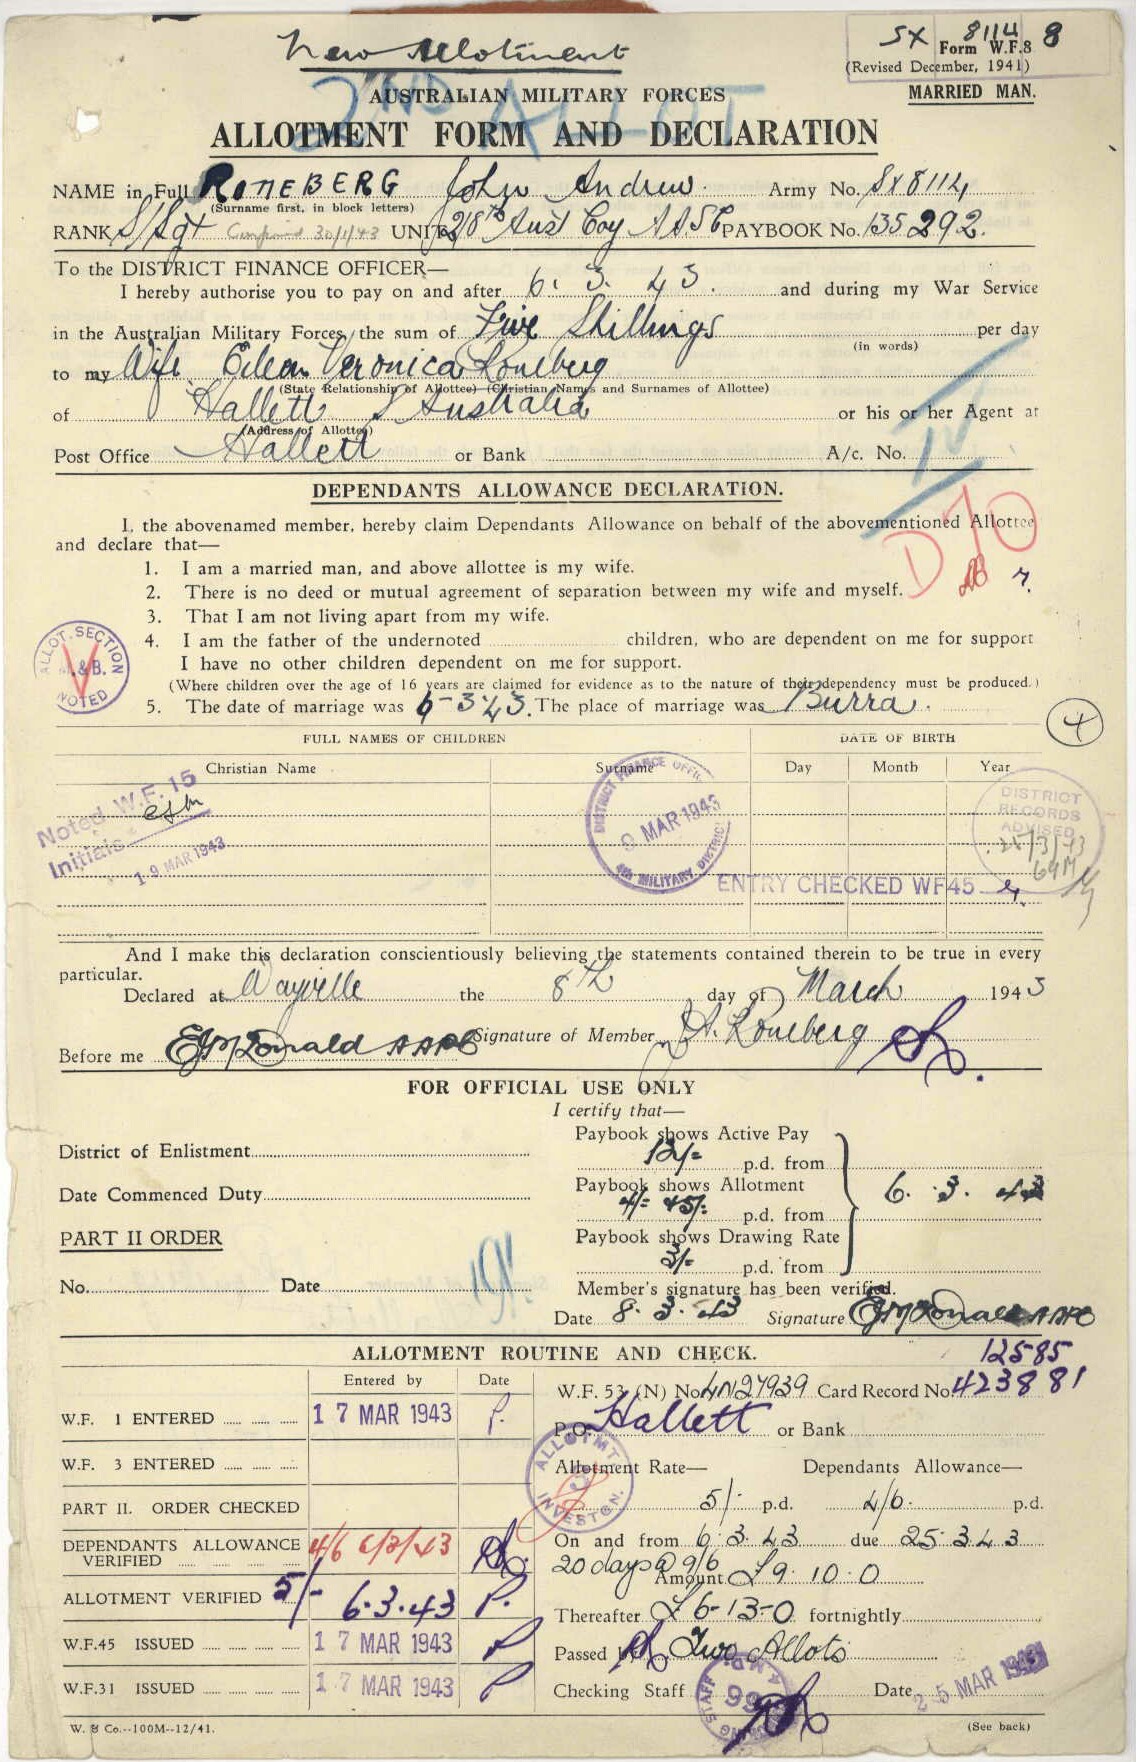 New Allotment
SX 8114 8
Form W.F.8
(Revised December, 1941)
MARRIED MAN.
2ND ALLOT
AUSTRALIAN MILITARY FORCES
ALLOTMENT FORM AND DECLARATION
NAME in Full RONEBERG John Andrew. Army No. SX8114
(Surname first, in block letters)
RANK S/Sgt Confirmed 30/1/43 UNIT 2/8th Aust Coy AASC PAYBOOK No. 135292.
To the DISTRICT FINANCE OFFICER—
I hereby authorise you to pay on and after 6. 3. 43. and during my War Service
in the Australian Military Forces, the sum of Five Shillings per day
(in words)
to my Wife Eileen Veronica Roneberg
(State Relationship of Allottee) (Christian Names and Surnames of Allottee)
of Hallett S Australia or his or her Agent at
(Address of Allottee)
Post Office Hallett or Bank A/c. No.
DEPENDANTS ALLOWANCE DECLARATION.
I, the abovenamed member, hereby claim Dependants Allowance on behalf of the abovementioned Allottee
and declare that—
D70
1. I am a married man, and above allottee is my wife.
2. There is no deed or mutual agreement of separation between my wife and myself.
3. That I am not living apart from my wife.
4. I am the father of the undernoted children, who are dependent on me for support
I have no other children dependent on me for support.
(Where children over the age of 16 years are claimed for evidence as to the nature of their dependency must be produced.)
ALLOT. SECTION
& B.
NOTED
5. The date of marriage was 6-3-43. The place of marriage was Burra.
4
FULL NAMES OF CHILDREN DATE OF BIRTH
Christian Name Surname Day Month Year
Noted W.F. 15
Initials
19 MAR 1943
DISTRICT FINANCE OFFICE
9 MAR 1943
4th MILITARY DISTRICT
DISTRICT
RECORDS
ADVISED
25/3/43
ENTRY CHECKED WF45
And I make this declaration conscientiously believing the statements contained therein to be true in every
particular.
Declared at Wayville the 8th day of March 1943
Signature of Member J A. Roneberg
Before me E J McDonald AAPC
FOR OFFICIAL USE ONLY
I certify that—
Paybook shows Active Pay
District of Enlistment
12/= p.d. from
Paybook shows Allotment
Date Commenced Duty
4/= 5/= p.d. from
6. 3. 43
PART II ORDER
Paybook shows Drawing Rate
3/= p.d. from
No. Date
Member's signature has been verified.
Date 8. 3. 43 Signature E J McDonald AAPC
12585
ALLOTMENT ROUTINE AND CHECK.
Entered by Date
W.F. 53 (N) No. 4N27939 Card Record No. 423881
W.F. 1 ENTERED 17 MAR 1943 P.
P.O. Hallett or Bank
ALLOTMT INVESTGN.
W.F. 3 ENTERED
Allotment Rate— Dependants Allowance—
PART II. ORDER CHECKED
5/- p.d. 4/6. p.d.
DEPENDANTS ALLOWANCE VERIFIED 4/6 6/3/43
On and from 6.3.43 due 25.3.43
20 days @ 9/6
Amount £9.10.0
ALLOTMENT VERIFIED 5/- 6.3.43 P.
Thereafter £6-13-0 fortnightly
W.F.45 ISSUED 17 MAR 1943 P
Passed by Two Allots
W.F.31 ISSUED 17 MAR 1943 P
Checking Staff Date 25 MAR 1943
W. & Co.--100M--12/41.
(See back)